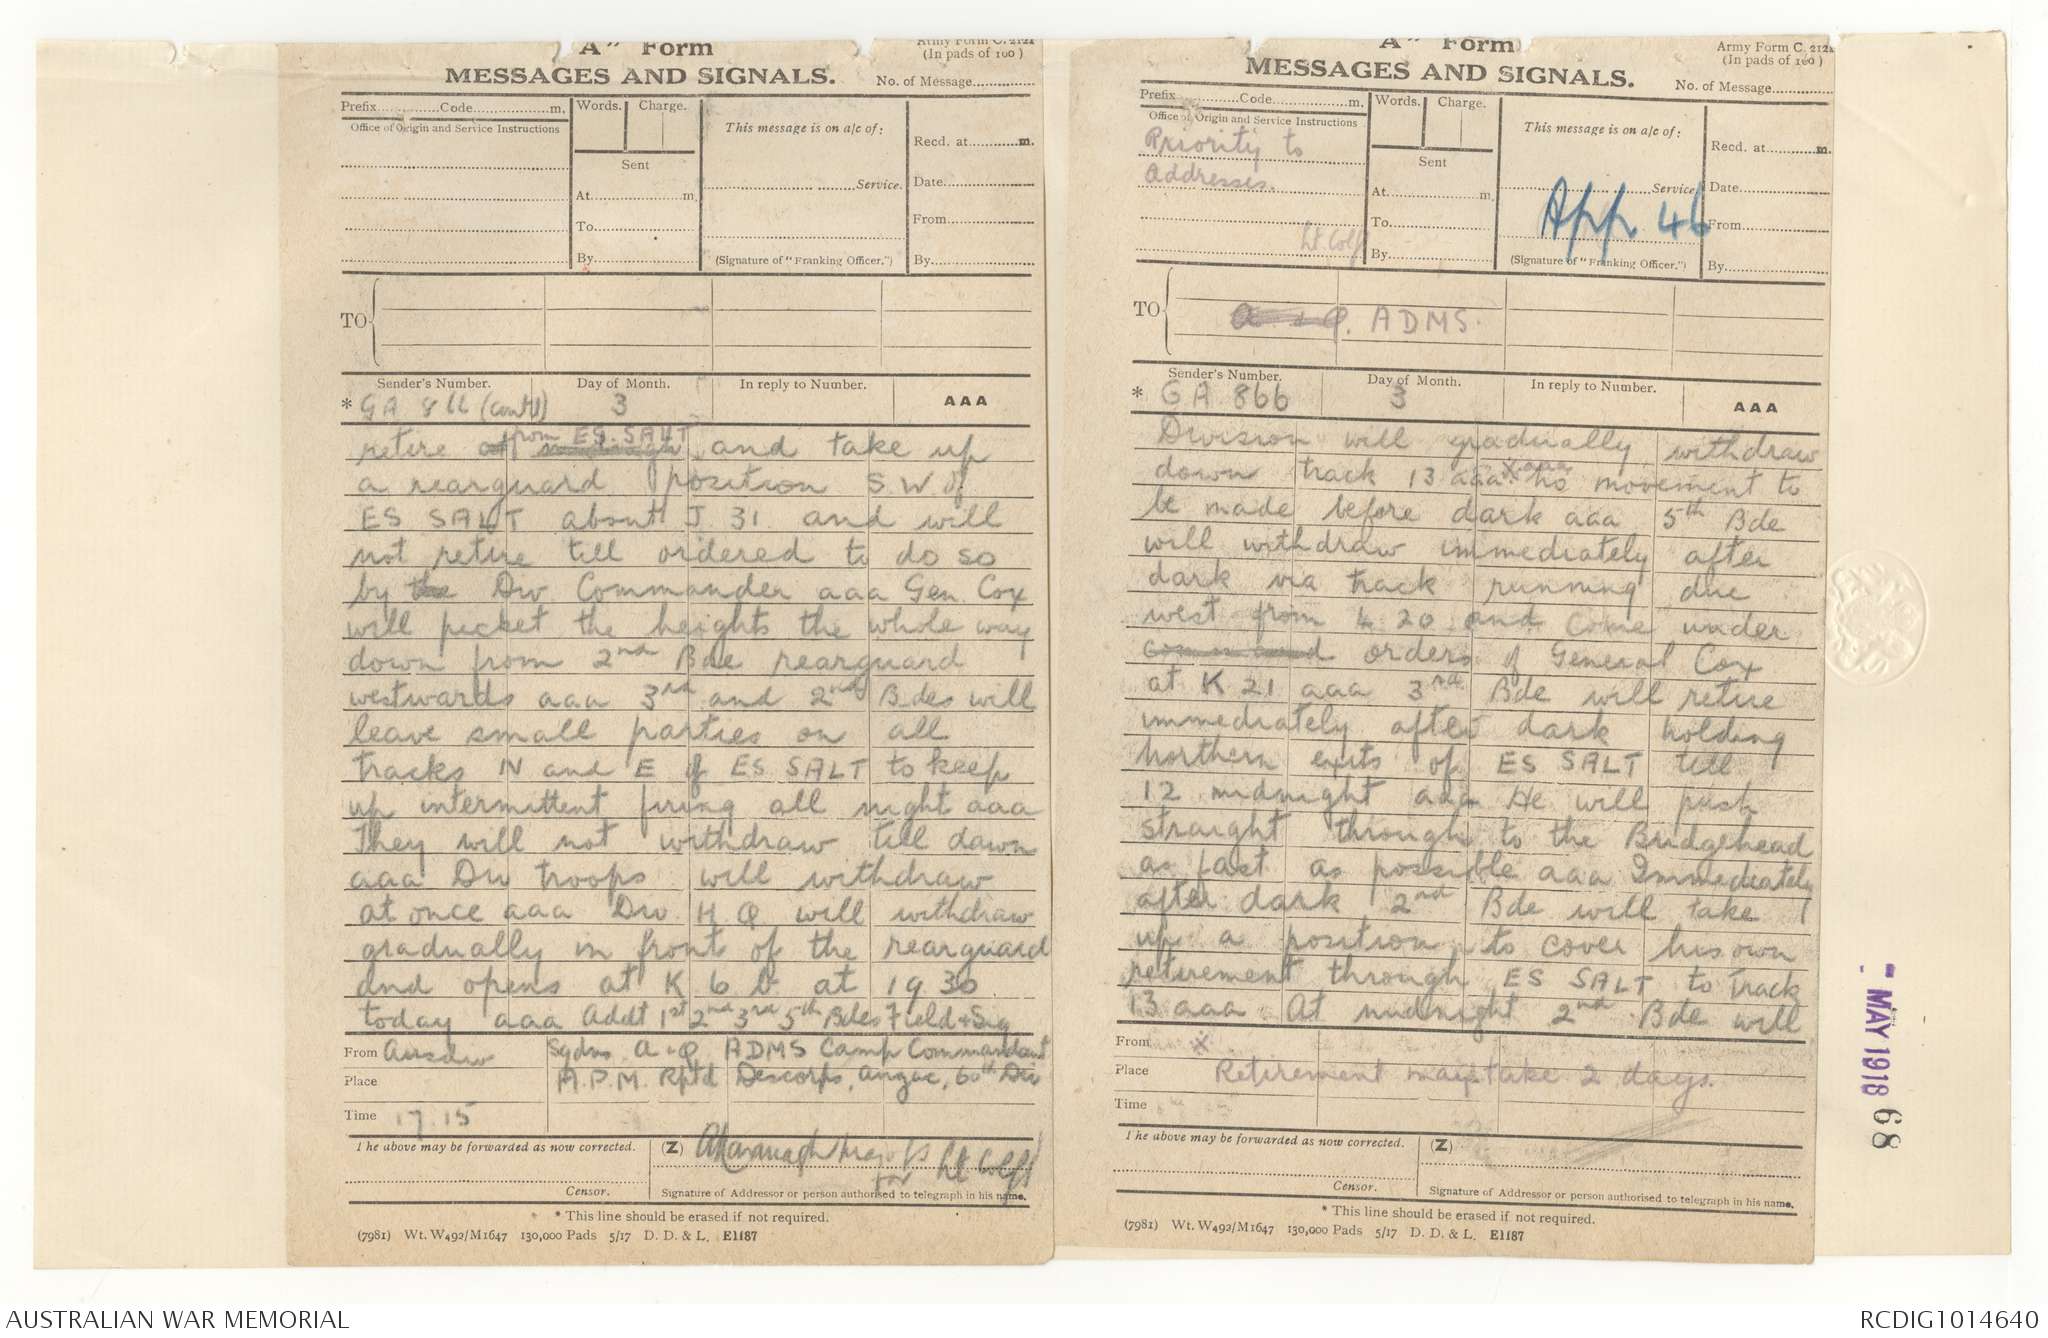 "A" Form
Army Form C. 2121
(In pads of 100)
MESSAGES AND SIGNALS.
No. of Message
Prefix Code m.
Words. Charge.
Office of Origin and Service Instructions
This message is on a/c of:
Recd. at m.
Sent
Service.
Date
At m.
From
To
By
(Signature of "Franking Officer.")
By
TO
Sender's Number.
Day of Month.
In reply to Number.
AAA
* GA 866 (contd)
3
retire at from ES. SALT and take up
a rearguard position SW of
ES SALT about J 31 and will
not retire till ordered to do so
by the Div Commander aaa Gen Cox
will picket the heights the whole way
down from 2nd Bde rearguard
westwards aaa 3rd and 2nd Bdes will
leave small parties on all
tracks N and E of ES SALT to keep
up intermittent firing all night aaa
They will not withdraw till dawn
aaa Div troops will withdraw
at once aaa Div H Q will withdraw
gradually in front of the rearguard
and opens at K 6 b at 1930
today aaa Addt 1st 2nd 3rd 5th Bdes Field + Sig
From Ausdiv
Sqdns A + Q ADMS Camp Commandant
Place
A.P.M. Rptd Descorps, Anzac, 60th Div
Time 17.15
The above may be forwarded as now corrected.
(Z)
AKavanagh Major GS
for Lt Col GS
Censor.
Signature of Addressor or person authorised to telegraph in his name.
* This line should be erased if not required.
(7981) Wt. W492/M1647 130,000 Pads 5/17 D. D. & L. E1187
"A" Form
Army Form C. 2121
(In pads of 100)
MESSAGES AND SIGNALS.
No. of Message
Prefix Code m.
Words. Charge.
Office of Origin and Service Instructions
This message is on a/c of:
Recd. at m.
Priority to
Addresses.
Sent
Service
Date
At m.
App. 46
From
To
Lt Col
By
(Signature of "Franking Officer.")
By
TO
A + Q. ADMS.
Sender's Number.
Day of Month.
In reply to Number.
AAA
* GA 866
3
Division will gradually withdraw
down track 13 aaa X aaa No movement to
be made before dark aaa 5th Bde
will withdraw immediately after
dark via track running due
west from L 20 and come under
command orders of General Cox
at K 21 aaa 3rd Bde will retire
immediately after dark holding
Northern exits of ES SALT till
12 midnight aaa He will push
straight through to the Bridgehead
as fast as possible aaa Immediately
after dark 2nd Bde will take
up a position to cover his own
retirement through ES SALT to Track
13 aaa At midnight 2nd Bde will
From X
Place
Retirement may take 2 days.
Time
The above may be forwarded as now corrected.
(Z)
Censor.
Signature of Addressor or person authorised to telegraph in his name.
* This line should be erased if not required.
(7981) Wt. W492/M1647 130,000 Pads 5/17 D. D. & L. E1187
- MAY 1918
68
AUSTRALIAN WAR MEMORIAL
RCDIG1014640